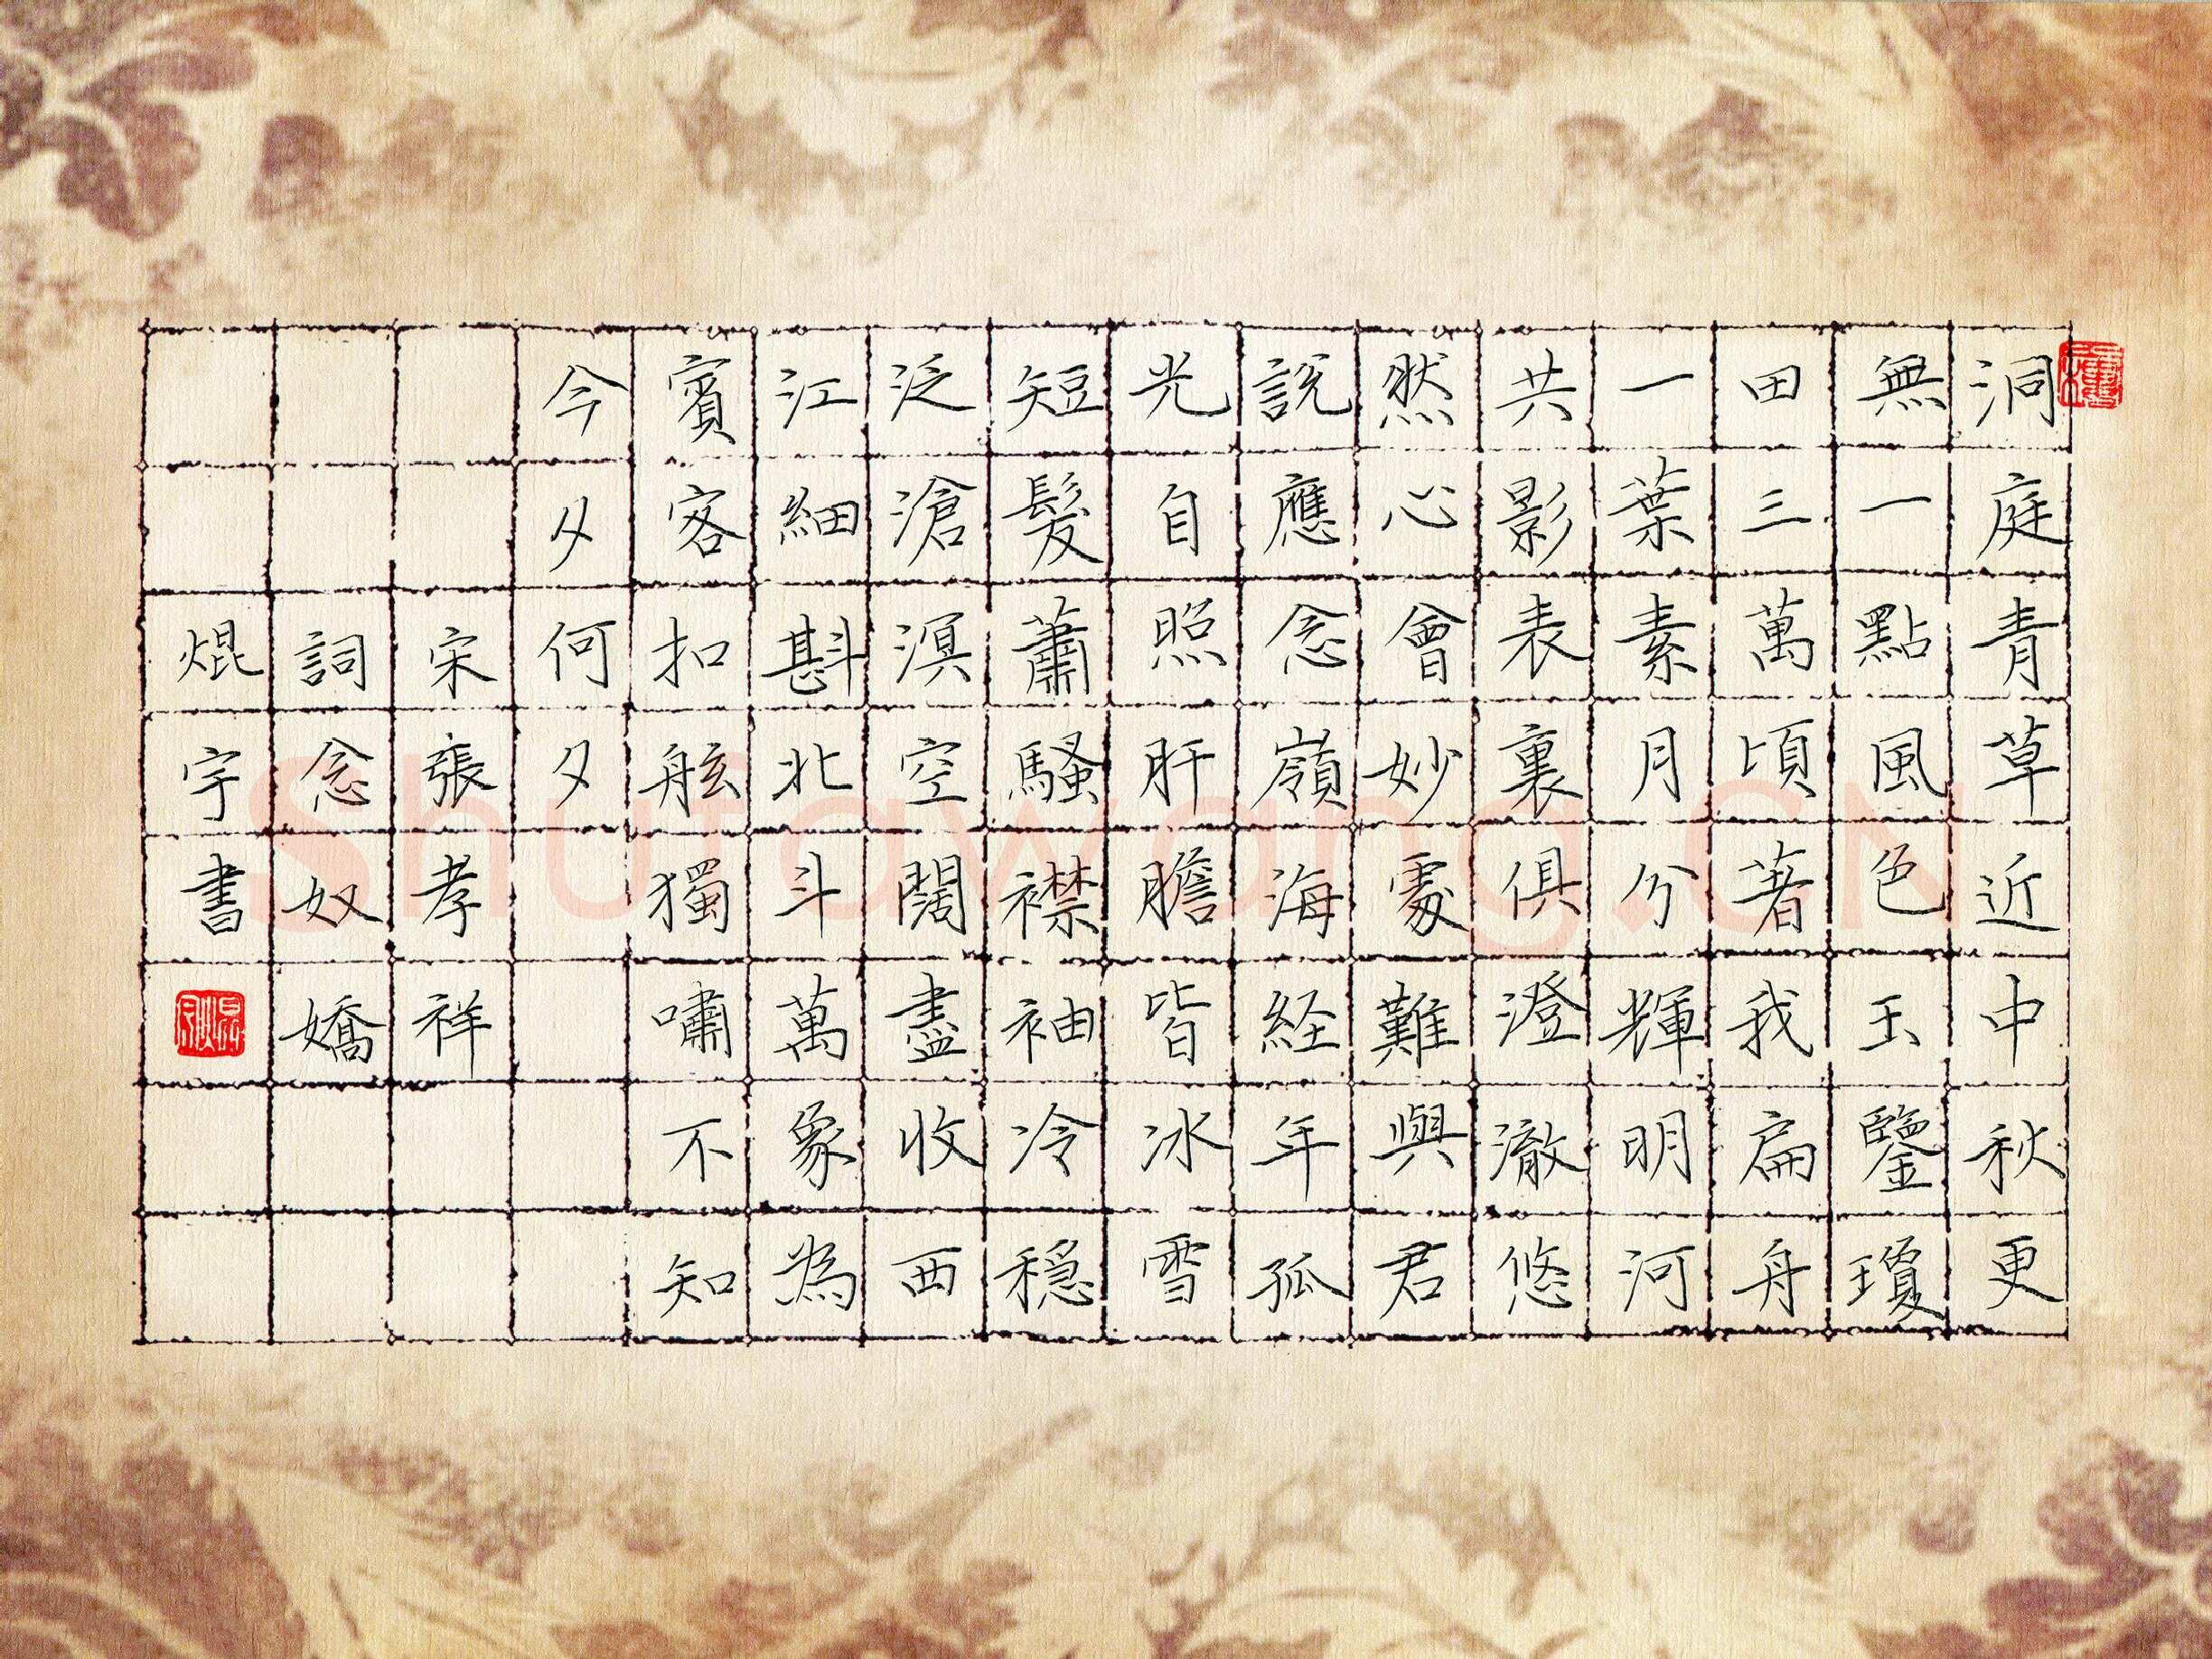 洞庭青草近中秋更
無一點風色玉鑒瓊
田三萬頃著我扁舟
一葉素月分輝明河
共影表裏俱澄澈悠
然心會妙處難與君
說應念嶺海経年孤
光自照肝膽皆冰雪
短髮蕭騷襟袖冷穩
泛滄溟空闊盡收西
江細斟北斗萬象為
賓客扣舷獨嘯不知
今夕何夕
宋張孝祥
詞念奴嬌
焜宇書
Shufawang.CN